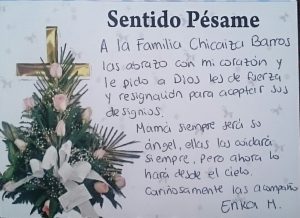 Sentido Pésame
A la Familia Chicaiza Barros
las abrazo con mi corazón y
le pido a Dios les de fuerza
y resignación para aceptar sus
designios.
Mamá siempre será su
ángel, ellas las cuidará
siempre, pero ahora lo
hará desde el cielo.
Cariñosamente las acompaño
Erika M.